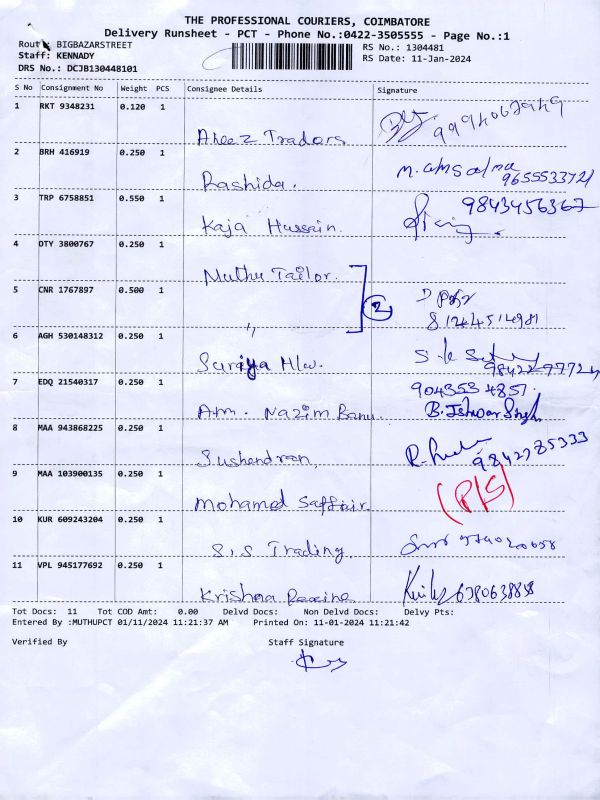 THE PROFESSIONAL COURIERS, COIMBATORE
Delivery Runsheet - PCT - Phone No.:0422-3505555 - Page No.:1
Route BIGBAZARSTREET
RS No.: 1304481
Staff: KENNADY
RS Date: 11-Jan-2024
DRS No.: DCJB130448101
S No Consignment No Weight PCS Consignee Details Signature
1 RKT 9348231 0.120 1
Traders
2 BRH 416919 0.250 1
Rashida. 9655533721
3 TRP 6758851 0.550 1
Kaja Hussain. 9843456367
4 DTY 3800767 0.250 1
Muthu Tailor.
5 CNR 1767897 0.500 1
" 2
6 AGH 530148312 0.250 1
Suriya H/w.
7 EDQ 21540317 0.250 1
Nazim Banu. B. Ishwar Singh
8 MAA 943868225 0.250 1
Sushendran, 9842785333
9 MAA 103900135 0.250 1
Mohamed Saffair. (P/S)
10 KUR 609243204 0.250 1
S.S Trading.
11 VPL 945177692 0.250 1
Krishna Rexine
Tot Docs: 11 Tot COD Amt: 0.00 Delvd Docs: Non Delvd Docs: Delvy Pts:
Entered By :MUTHUPCT 01/11/2024 11:21:37 AM Printed On: 11-01-2024 11:21:42
Verified By Staff Signature